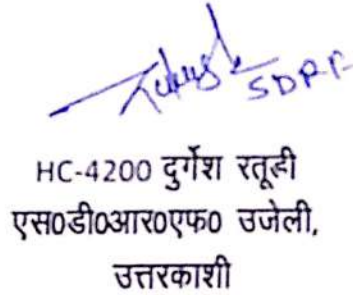 SDRF
HC-4200 दुर्गेश रतूडी
एस0डी0आर0एफ0 उजेली,
उत्तरकाशी